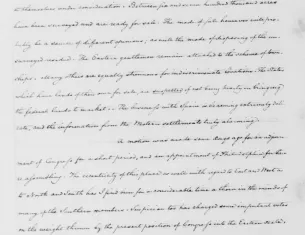 themselves under consideration. Between five and one hundred thousand acres
have been surveyed and are ready for sale. The mode of sale however will pro-
bably be a source of different opinions, as will the mode of disposing of the un-
surveyed residue. The Eastern gentlemen remain attached to the scheme of town-
ships. Many others are equally strenuous for indiscriminate locations. The States
which have lands of their own for sale, are suspected of not being hearty in bringing
the federal lands to market. The business with Spain is becoming extremely deli-
cate, and the information from the Western settlements truly alarming.
A motion was made some days ago for an adjourn-
ment of Congress for a short period, and an appointment of Philadelphia for their
reassembling. The eccentricity of this place as well with regard to East and West as
to North and South has I find been for a considerable time a thorn in the minds of
many of the Southern members. Suspicion too has charged some important votes
on the weight thrown by the present position of Congress into the Eastern scale,